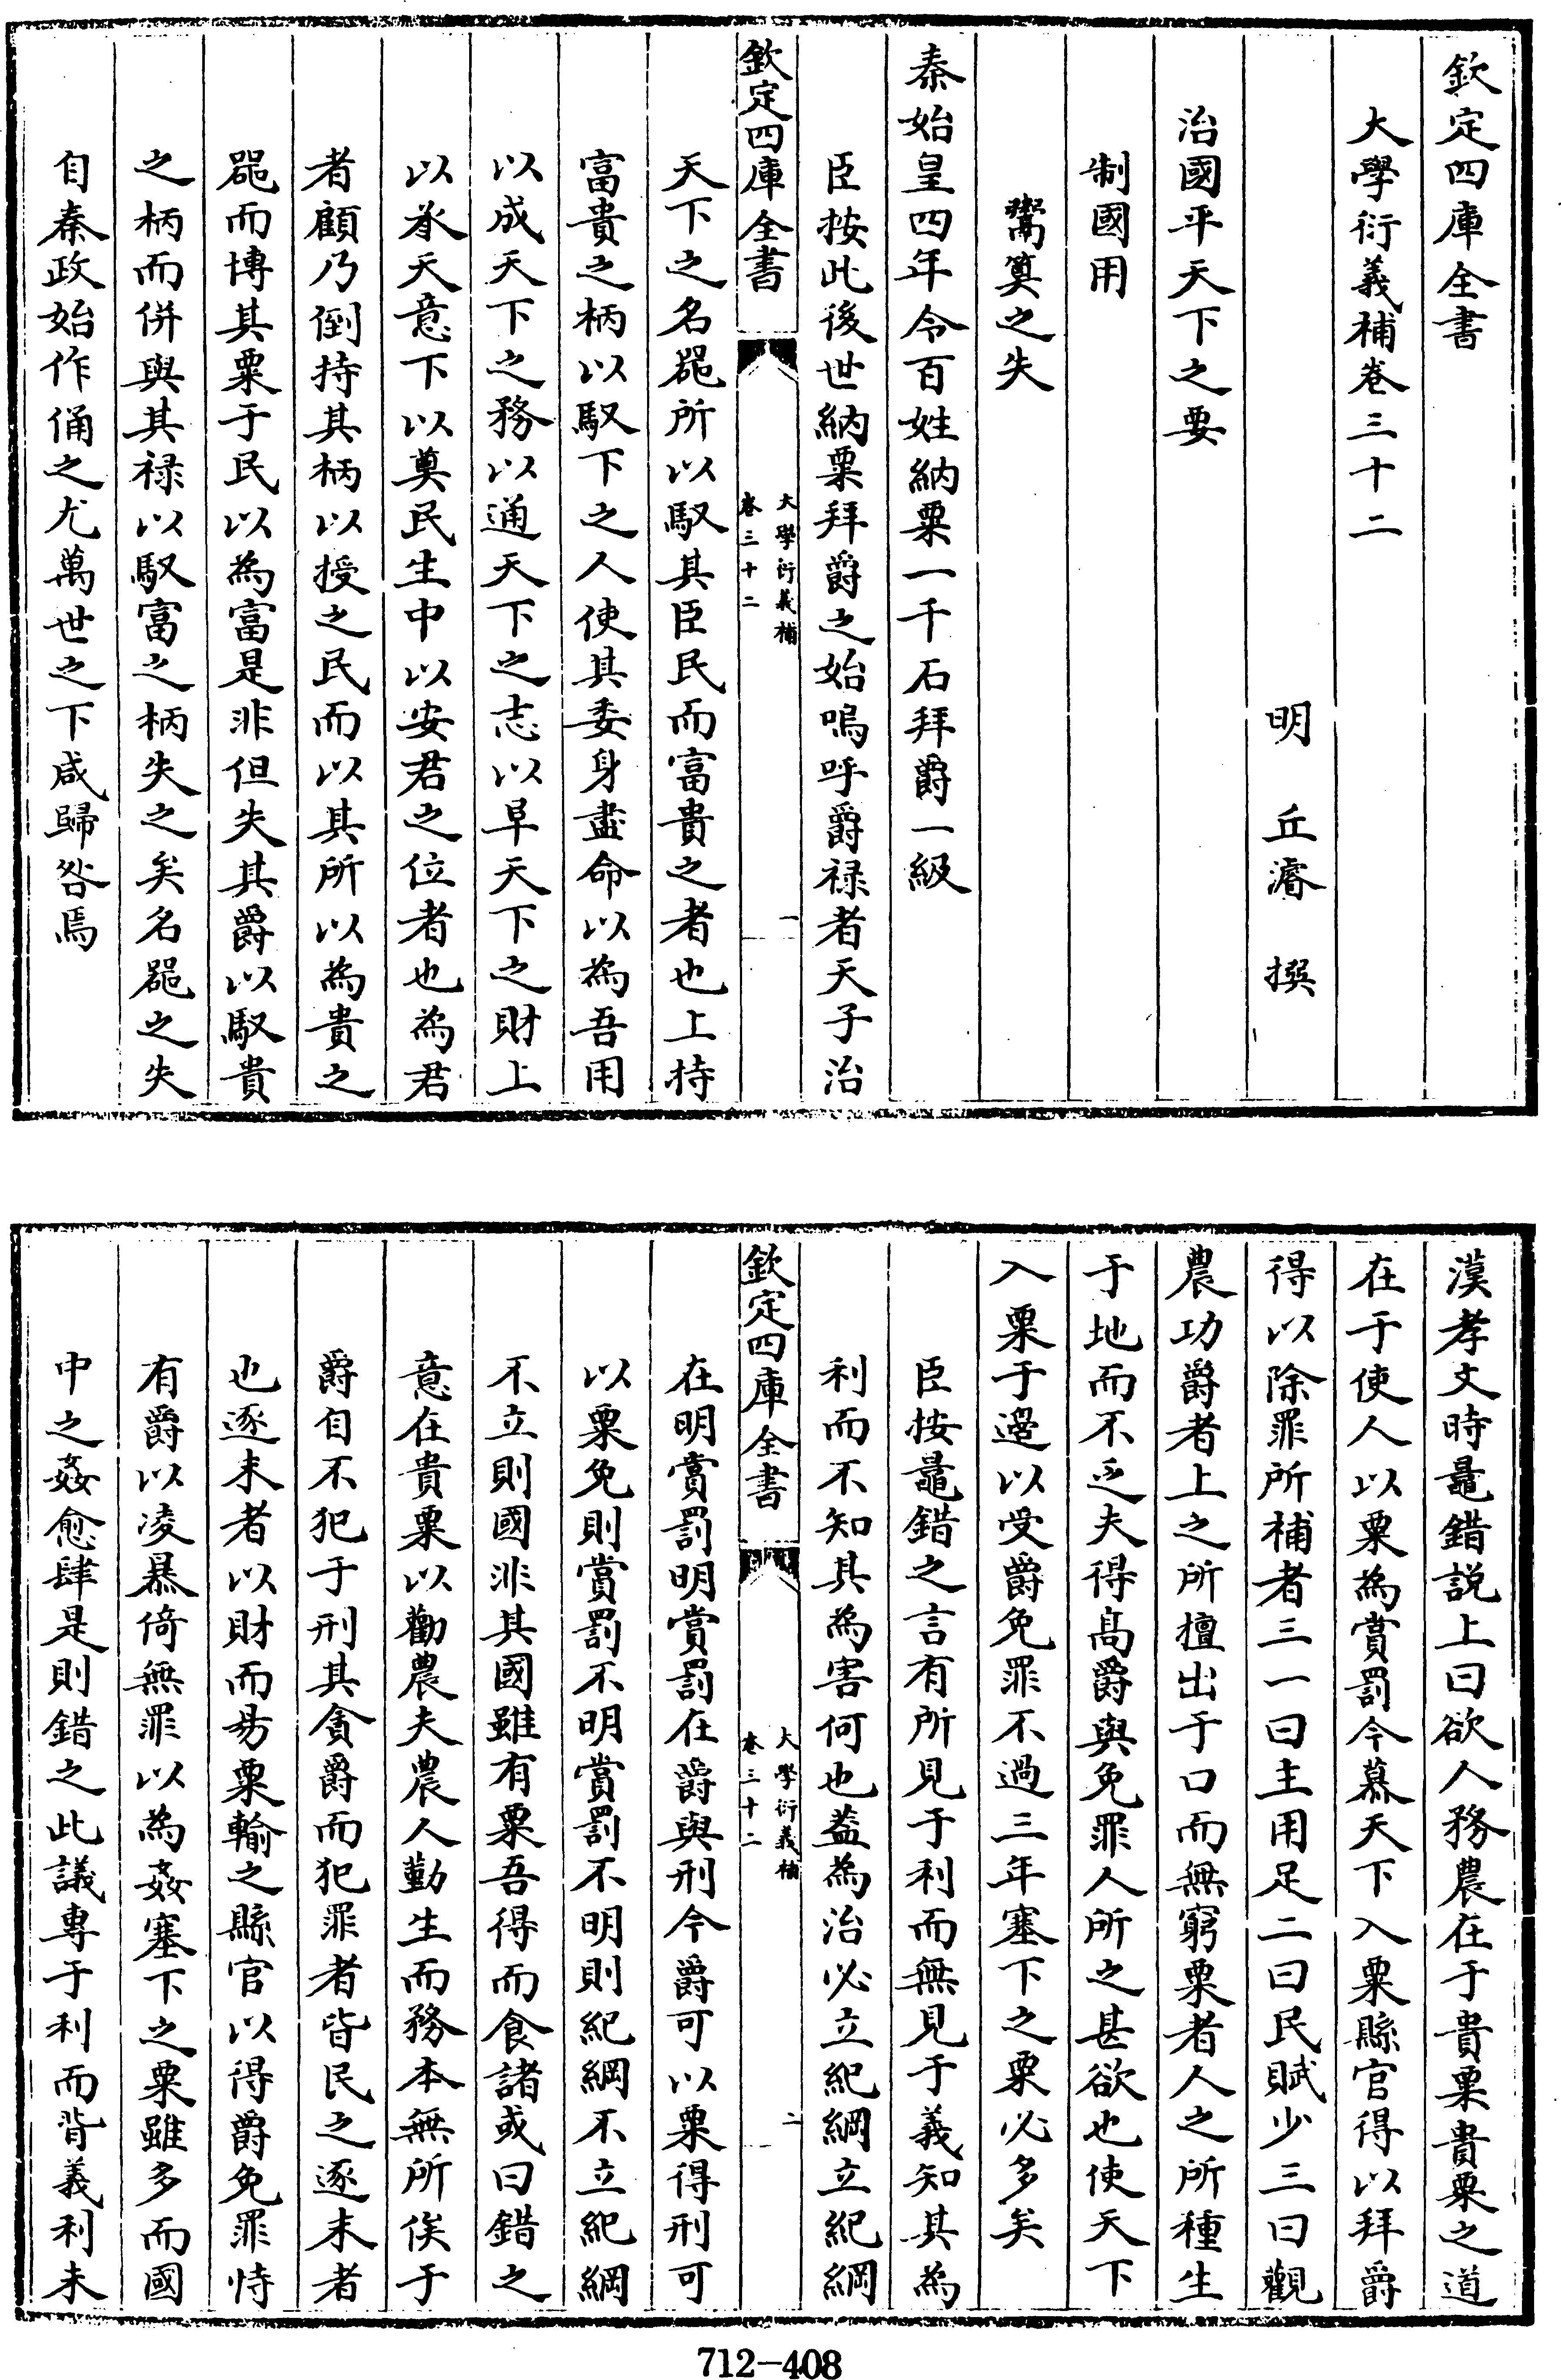 欽定四庫全書
大學衍義補卷三十二
明 丘濬 撰
治國平天下之要
制國用
鬻算之失
秦始皇四年令百姓納粟一千石拜爵一級
臣按此後世納粟拜爵之始嗚呼爵禄者天子治
欽定四庫全書
大學衍義補
卷三十二
一
天下之名器所以馭其臣民而富貴之者也上持
富貴之柄以馭下之人使其委身盡命以為吾用
以成天下之務以通天下之志以阜天下之財上
以承天意下以奠民生中以安君之位者也為君
者顧乃倒持其柄以授之民而以其所以為貴之
器而博其粟于民以為富是非但失其爵以馭貴
之柄而併與其禄以馭富之柄失之矣名器之失
自秦政始作俑之尤萬世之下咸歸咎焉
漢孝文時鼂錯説上曰欲人務農在于貴粟貴粟之道
在于使人以粟為賞罰今募天下入粟縣官得以拜爵
得以除罪所補者三一曰主用足二曰民賦少三曰觀
農功爵者上之所擅出于口而無窮粟者人之所種生
于地而不乏夫得髙爵與免罪人所之甚欲也使天下
入粟于邊以受爵免罪不過三年塞下之粟必多矣
臣按鼂錯之言有所見于利而無見于義知其為
利而不知其為害何也葢為治必立紀綱立紀綱
欽定四庫全書
大學衍義補
卷三十二
二
在明賞罰明賞罰在爵與刑今爵可以粟得刑可
以粟免則賞罰不明賞罰不明則紀綱不立紀綱
不立則國非其國雖有粟吾得而食諸或曰錯之
意在貴粟以勸農夫農人勤生而務本無所俟于
爵自不犯于刑其貪爵而犯罪者皆民之逐末者
也逐末者以財而易粟輸之縣官以得爵免罪恃
有爵以凌暴倚無罪以為姦塞下之粟雖多而國
中之姦愈肆是則錯之此議専于利而背義利未
712-408